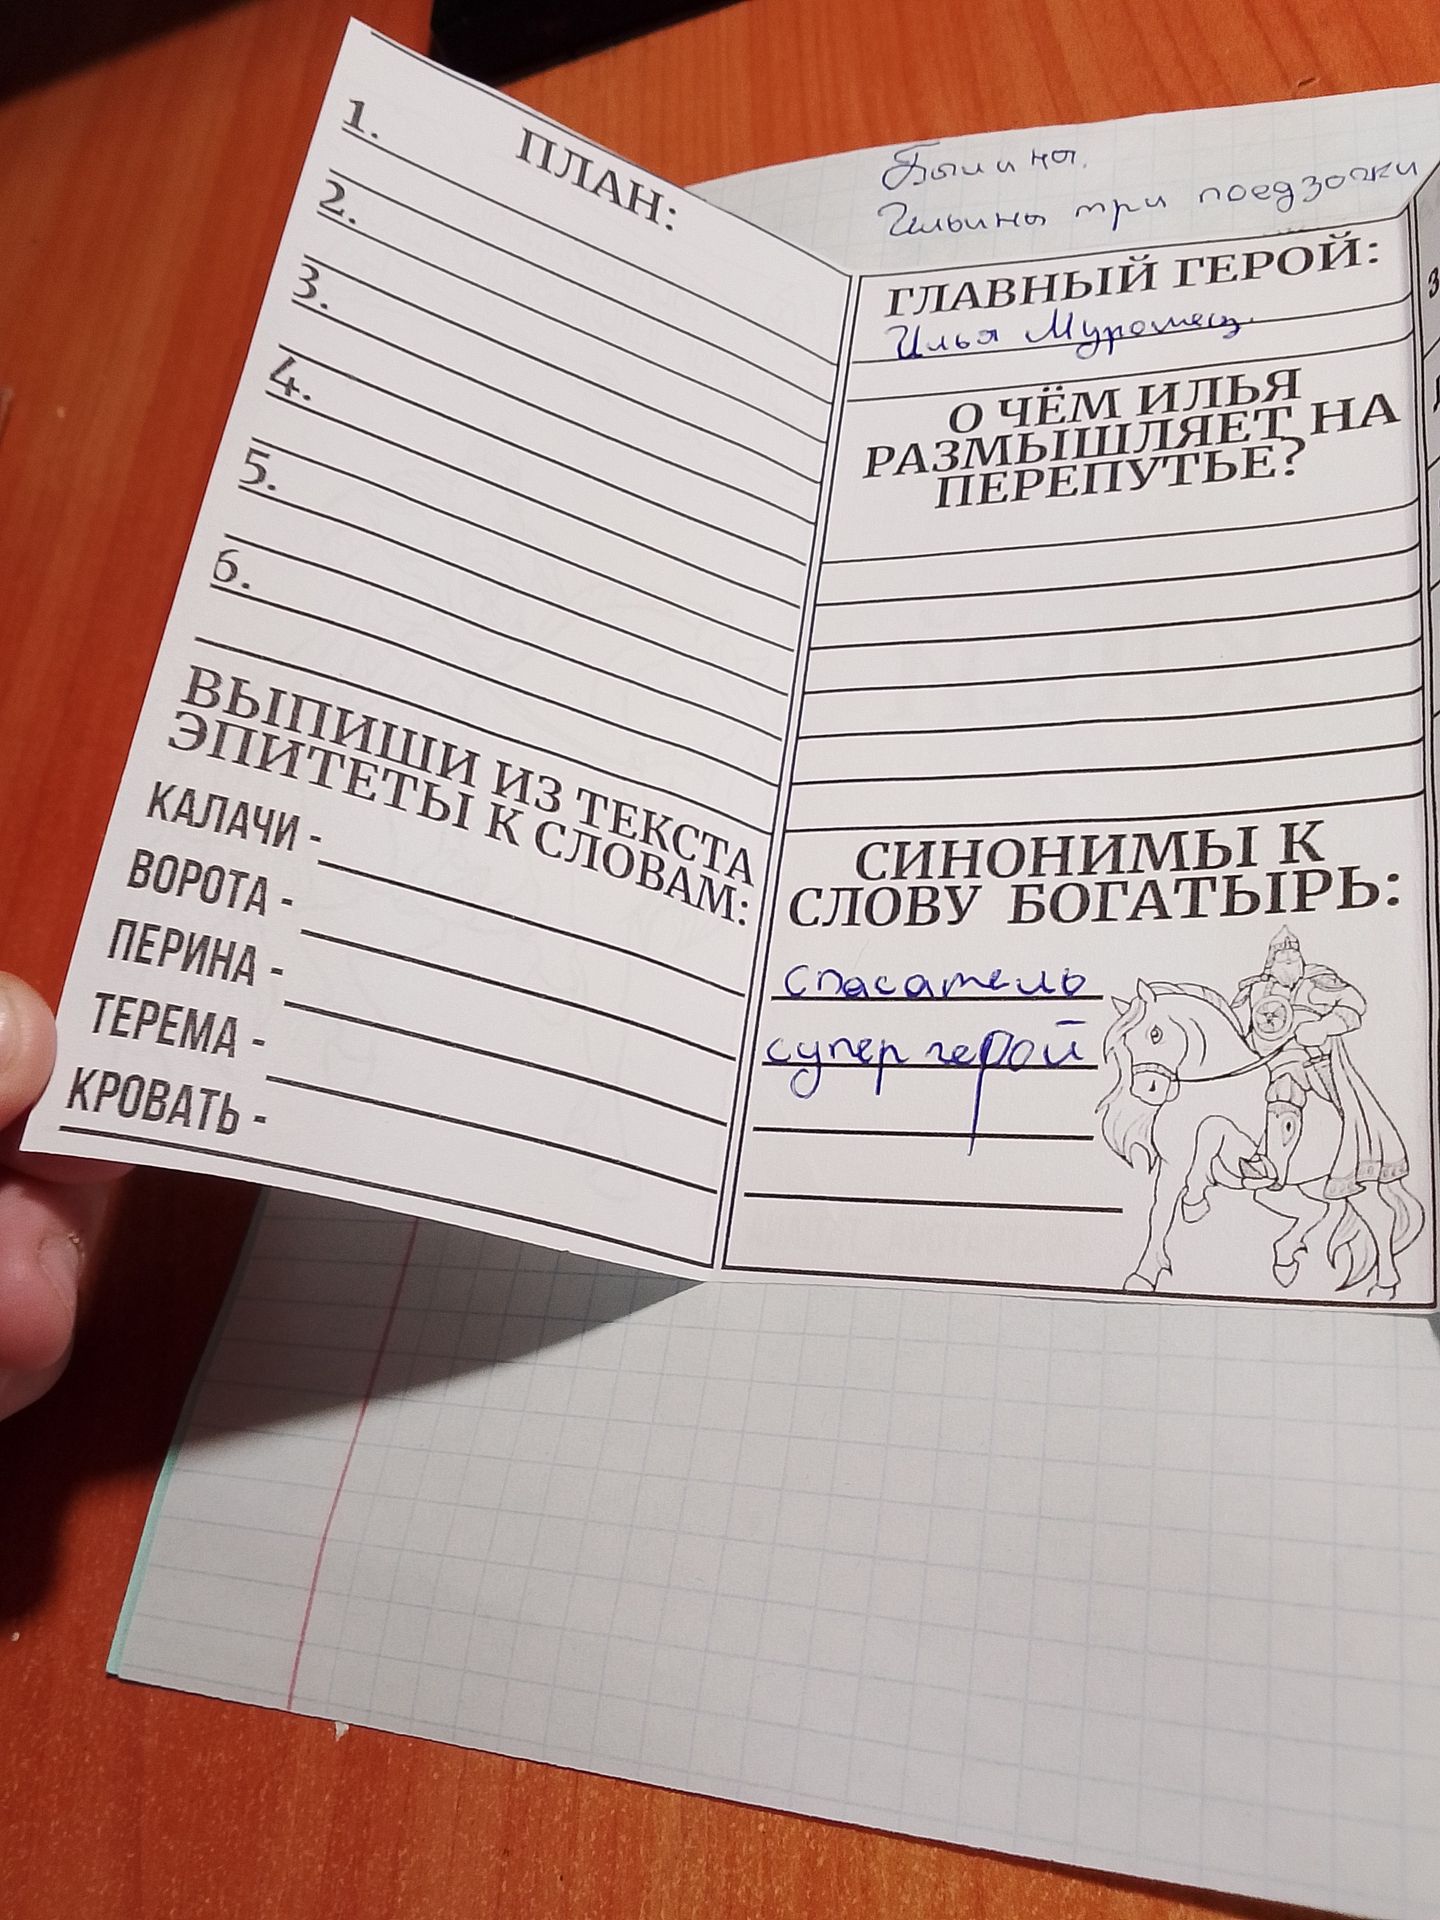 Былины.
Ильины три поездочки
ПЛАН:
1.
2.
3.
4.
5.
6.
ВЫПИШИ ИЗ ТЕКСТА
ЭПИТЕТЫ К СЛОВАМ:
КАЛАЧИ -
ВОРОТА -
ПЕРИНА -
ТЕРЕМА -
КРОВАТЬ -
ГЛАВНЫЙ ГЕРОЙ:
Илья Муромец.
О ЧЁМ ИЛЬЯ
РАЗМЫШЛЯЕТ НА
ПЕРЕПУТЬЕ?
СИНОНИМЫ К
СЛОВУ БОГАТЫРЬ:
спасатель
супергерой